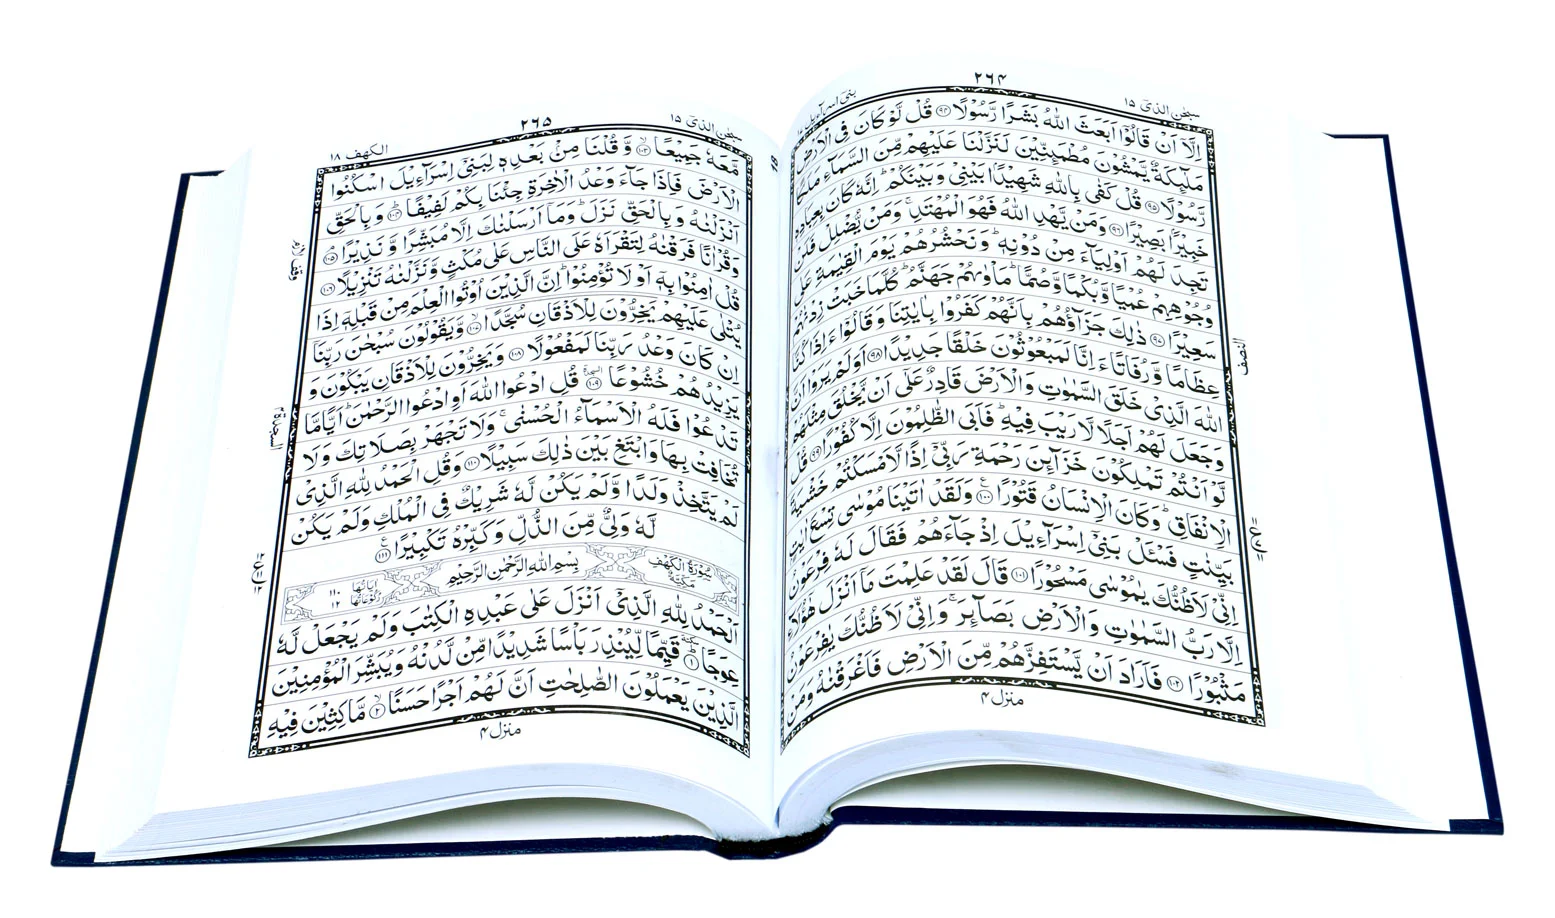 ٢٦۴
سبحٰن الذیٓ ١۵
بنیٓ اسرآءیل ١٧
اِلَّاۤ اَنۡ قَالُوۡۤا اَبَعَثَ اللّٰهُ بَشَرًا رَّسُوۡلًا ﴿۹۴﴾ قُلۡ لَّوۡ كَانَ فِى الۡاَرۡضِ
مَلٰٓٮِٕكَةٌ يَّمۡشُوۡنَ مُطۡمَٮِٕنِّيۡنَ لَـنَزَّلۡنَا عَلَيۡهِمۡ مِّنَ السَّمَآءِ مَلَـكًا
رَّسُوۡلًا ﴿۹۵﴾ قُلۡ كَفٰى بِاللّٰهِ شَهِيۡدًۢا بَيۡنِىۡ وَبَيۡنَكُمۡ‌ؕ اِنَّهٗ كَانَ بِعِبَادِهٖ
خَبِيۡرًۢا بَصِيۡرًا ﴿۹۶﴾ وَمَنۡ يَّهۡدِ اللّٰهُ فَهُوَ الۡمُهۡتَدِ‌ۚ وَمَنۡ يُّضۡلِلۡ فَلَنۡ
تَجِدَ لَهُمۡ اَوۡلِيَآءَ مِنۡ دُوۡنِهٖ‌ؕ وَنَحۡشُرُهُمۡ يَوۡمَ الۡقِيٰمَةِ عَلٰى
وُجُوۡهِهِمۡ عُمۡيًا وَّبُكۡمًا وَّصُمًّا‌ؕ مَاۡوٰٮهُمۡ جَهَـنَّمُ‌ؕ كُلَّمَا خَبَتۡ زِدۡنٰهُمۡ
سَعِيۡرًا ﴿۹۷﴾ ذٰلِكَ جَزَآؤُهُمۡ بِاَنَّهُمۡ كَفَرُوۡا بِاٰيٰتِنَا وَقَالُوۡۤا ءَاِذَا كُنَّا
عِظَامًا وَّرُفَاتًا ءَاِنَّا لَمَبۡعُوۡثُوۡنَ خَلۡقًا جَدِيۡدًا ﴿۹۸﴾ اَوَلَمۡ يَرَوۡا اَنَّ
اللّٰهَ الَّذِىۡ خَلَقَ السَّمٰوٰتِ وَالۡاَرۡضَ قَادِرٌ عَلٰٓى اَنۡ يَّخۡلُقَ مِثۡلَهُمۡ
وَجَعَلَ لَهُمۡ اَجَلًا لَّا رَيۡبَ فِيۡهِؕ فَاَبَى الظّٰلِمُوۡنَ اِلَّا كُفُوۡرًا ﴿۹۹﴾ قُلْ
لَّوۡ اَنۡتُمۡ تَمۡلِكُوۡنَ خَزَآٮِٕنَ رَحۡمَةِ رَبِّىۡۤ اِذًا لَّاَمۡسَكۡتُمۡ خَشۡيَةَ
الۡاِنۡفَاقِ‌ؕ وَكَانَ الۡاِنۡسَانُ قَتُوۡرًا ﴿۱۰۰﴾ وَلَقَدۡ اٰتَيۡنَا مُوۡسٰى تِسۡعَ اٰيٰتٍۢ
بَيِّنٰتٍ‌ فَسۡـــَٔلۡ بَنِىۡۤ اِسۡرَآءِيۡلَ اِذۡ جَآءَهُمۡ فَقَالَ لَهٗ فِرۡعَوۡنُ
اِنِّىۡ لَاَظُنُّكَ يٰمُوۡسٰى مَسۡحُوۡرًا ﴿۱۰۱﴾ قَالَ لَقَدۡ عَلِمۡتَ مَاۤ اَنۡزَلَ هٰٓؤُلَاۤءِ
اِلَّا رَبُّ السَّمٰوٰتِ وَالۡاَرۡضِ بَصَآٮِٕرَ‌ۚ وَاِنِّىۡ لَاَظُنُّكَ يٰفِرۡعَوۡنُ
مَثۡبُوۡرًا ﴿۱۰۲﴾ فَاَرَادَ اَنۡ يَّسۡتَفِزَّهُمۡ مِّنَ الۡاَرۡضِ فَاَغۡرَقۡنٰهُ وَمَنۡ
النصف
منزل ۴
٢٦۵
سبحٰن الذیٓ ١۵
الكهف ١٨
مَّعَهٗ جَمِيۡعًا ﴿۱۰۳﴾ وَّقُلۡنَا مِنۡۢ بَعۡدِهٖ لِبَنِىۡۤ اِسۡرَآءِيۡلَ اسۡكُنُوا
الۡاَرۡضَ فَاِذَا جَآءَ وَعۡدُ الۡاٰخِرَةِ جِئۡنَا بِكُمۡ لَفِيۡفًا ﴿۱۰۴﴾ وَبِالۡحَـقِّ
اَنۡزَلۡنٰهُ وَبِالۡحَـقِّ نَزَلَ‌ؕ وَمَاۤ اَرۡسَلۡنٰكَ اِلَّا مُبَشِّرًا وَّنَذِيۡرًا ﴿۱۰۵﴾
وَقُرۡاٰنًا فَرَقۡنٰهُ لِتَقۡرَاَهٗ عَلَى النَّاسِ عَلٰى مُكۡثٍ وَّنَزَّلۡنٰهُ تَنۡزِيۡلًا ﴿۱۰۶﴾
قُلۡ اٰمِنُوۡا بِهٖۤ اَوۡ لَا تُؤۡمِنُوۡٓا‌ؕ اِنَّ الَّذِيۡنَ اُوۡتُوا الۡعِلۡمَ مِنۡ قَبۡلِهٖۤ اِذَا
يُتۡلٰى عَلَيۡهِمۡ يَخِرُّوۡنَ لِلۡاَذۡقَانِ سُجَّدًا ﴿۱۰۷﴾ وَّيَقُوۡلُوۡنَ سُبۡحٰنَ رَبِّنَاۤ
اِنۡ كَانَ وَعۡدُ رَبِّنَا لَمَفۡعُوۡلًا ﴿۱۰۸﴾ وَيَخِرُّوۡنَ لِلۡاَذۡقَانِ يَبۡكُوۡنَ وَ
يَزِيۡدُهُمۡ خُشُوۡعًا ﴿۱۰۹﴾ قُلِ ادۡعُوا اللّٰهَ اَوِ ادۡعُوا الرَّحۡمٰنَ‌ؕ اَيًّا مَّا
تَدۡعُوۡا فَلَهُ الۡاَسۡمَآءُ الۡحُسۡنٰى ‌ۚ وَلَا تَجۡهَرۡ بِصَلَاتِكَ وَلَا
تُخَافِتۡ بِهَا وَابۡتَغِ بَيۡنَ ذٰلِكَ سَبِيۡلًا ﴿۱۱۰﴾ وَقُلِ الۡحَمۡدُ لِلّٰهِ الَّذِىۡ
لَمۡ يَتَّخِذۡ وَلَدًا وَّلَمۡ يَكُنۡ لَّهٗ شَرِيۡكٌ فِى الۡمُلۡكِ وَلَمۡ يَكُنۡ
لَّهٗ وَلِىٌّ مِّنَ الذُّلِّ‌ وَكَبِّرۡهُ تَكۡبِيۡرًا ﴿۱۱۱﴾
سُوۡرَةُ الۡكَهۡفِ مَكِّيَّةٌ بِسۡمِ اللّٰهِ الرَّحۡمٰنِ الرَّحِيۡمِ اٰيَاتُهَا ١١٠ رُكُوۡعَاتُهَا ١٢
اَلۡحَمۡدُ لِلّٰهِ الَّذِىۡۤ اَنۡزَلَ عَلٰى عَبۡدِهِ الۡكِتٰبَ وَلَمۡ يَجۡعَلْ لَّهٗ
عِوَجًا ﴿۱﴾ قَيِّمًا لِّيُنۡذِرَ بَاۡسًا شَدِيۡدًا مِّنۡ لَّدُنۡهُ وَيُبَشِّرَ الۡمُؤۡمِنِيۡنَ
الَّذِيۡنَ يَعۡمَلُوۡنَ الصّٰلِحٰتِ اَنَّ لَهُمۡ اَجۡرًا حَسَنًا ﴿۲﴾ مَّاكِثِيۡنَ فِيۡهِ
منزل ۴